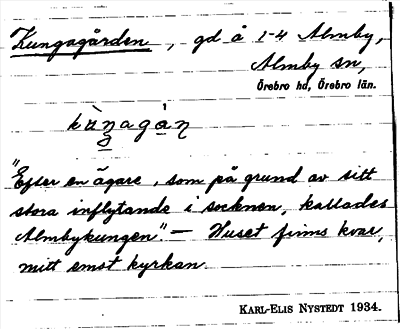 Kungagården, gd å 1-4 Almby,
Almby sn,
Örebro hd, Örebro län.
"Efter en ägare, som på grund av sitt
stora inflytande i socknen, kallades
Almbykungen". — Huset finns kvar,
mitt emot kyrkan.
KARL-ELIS NYSTEDT 1934.